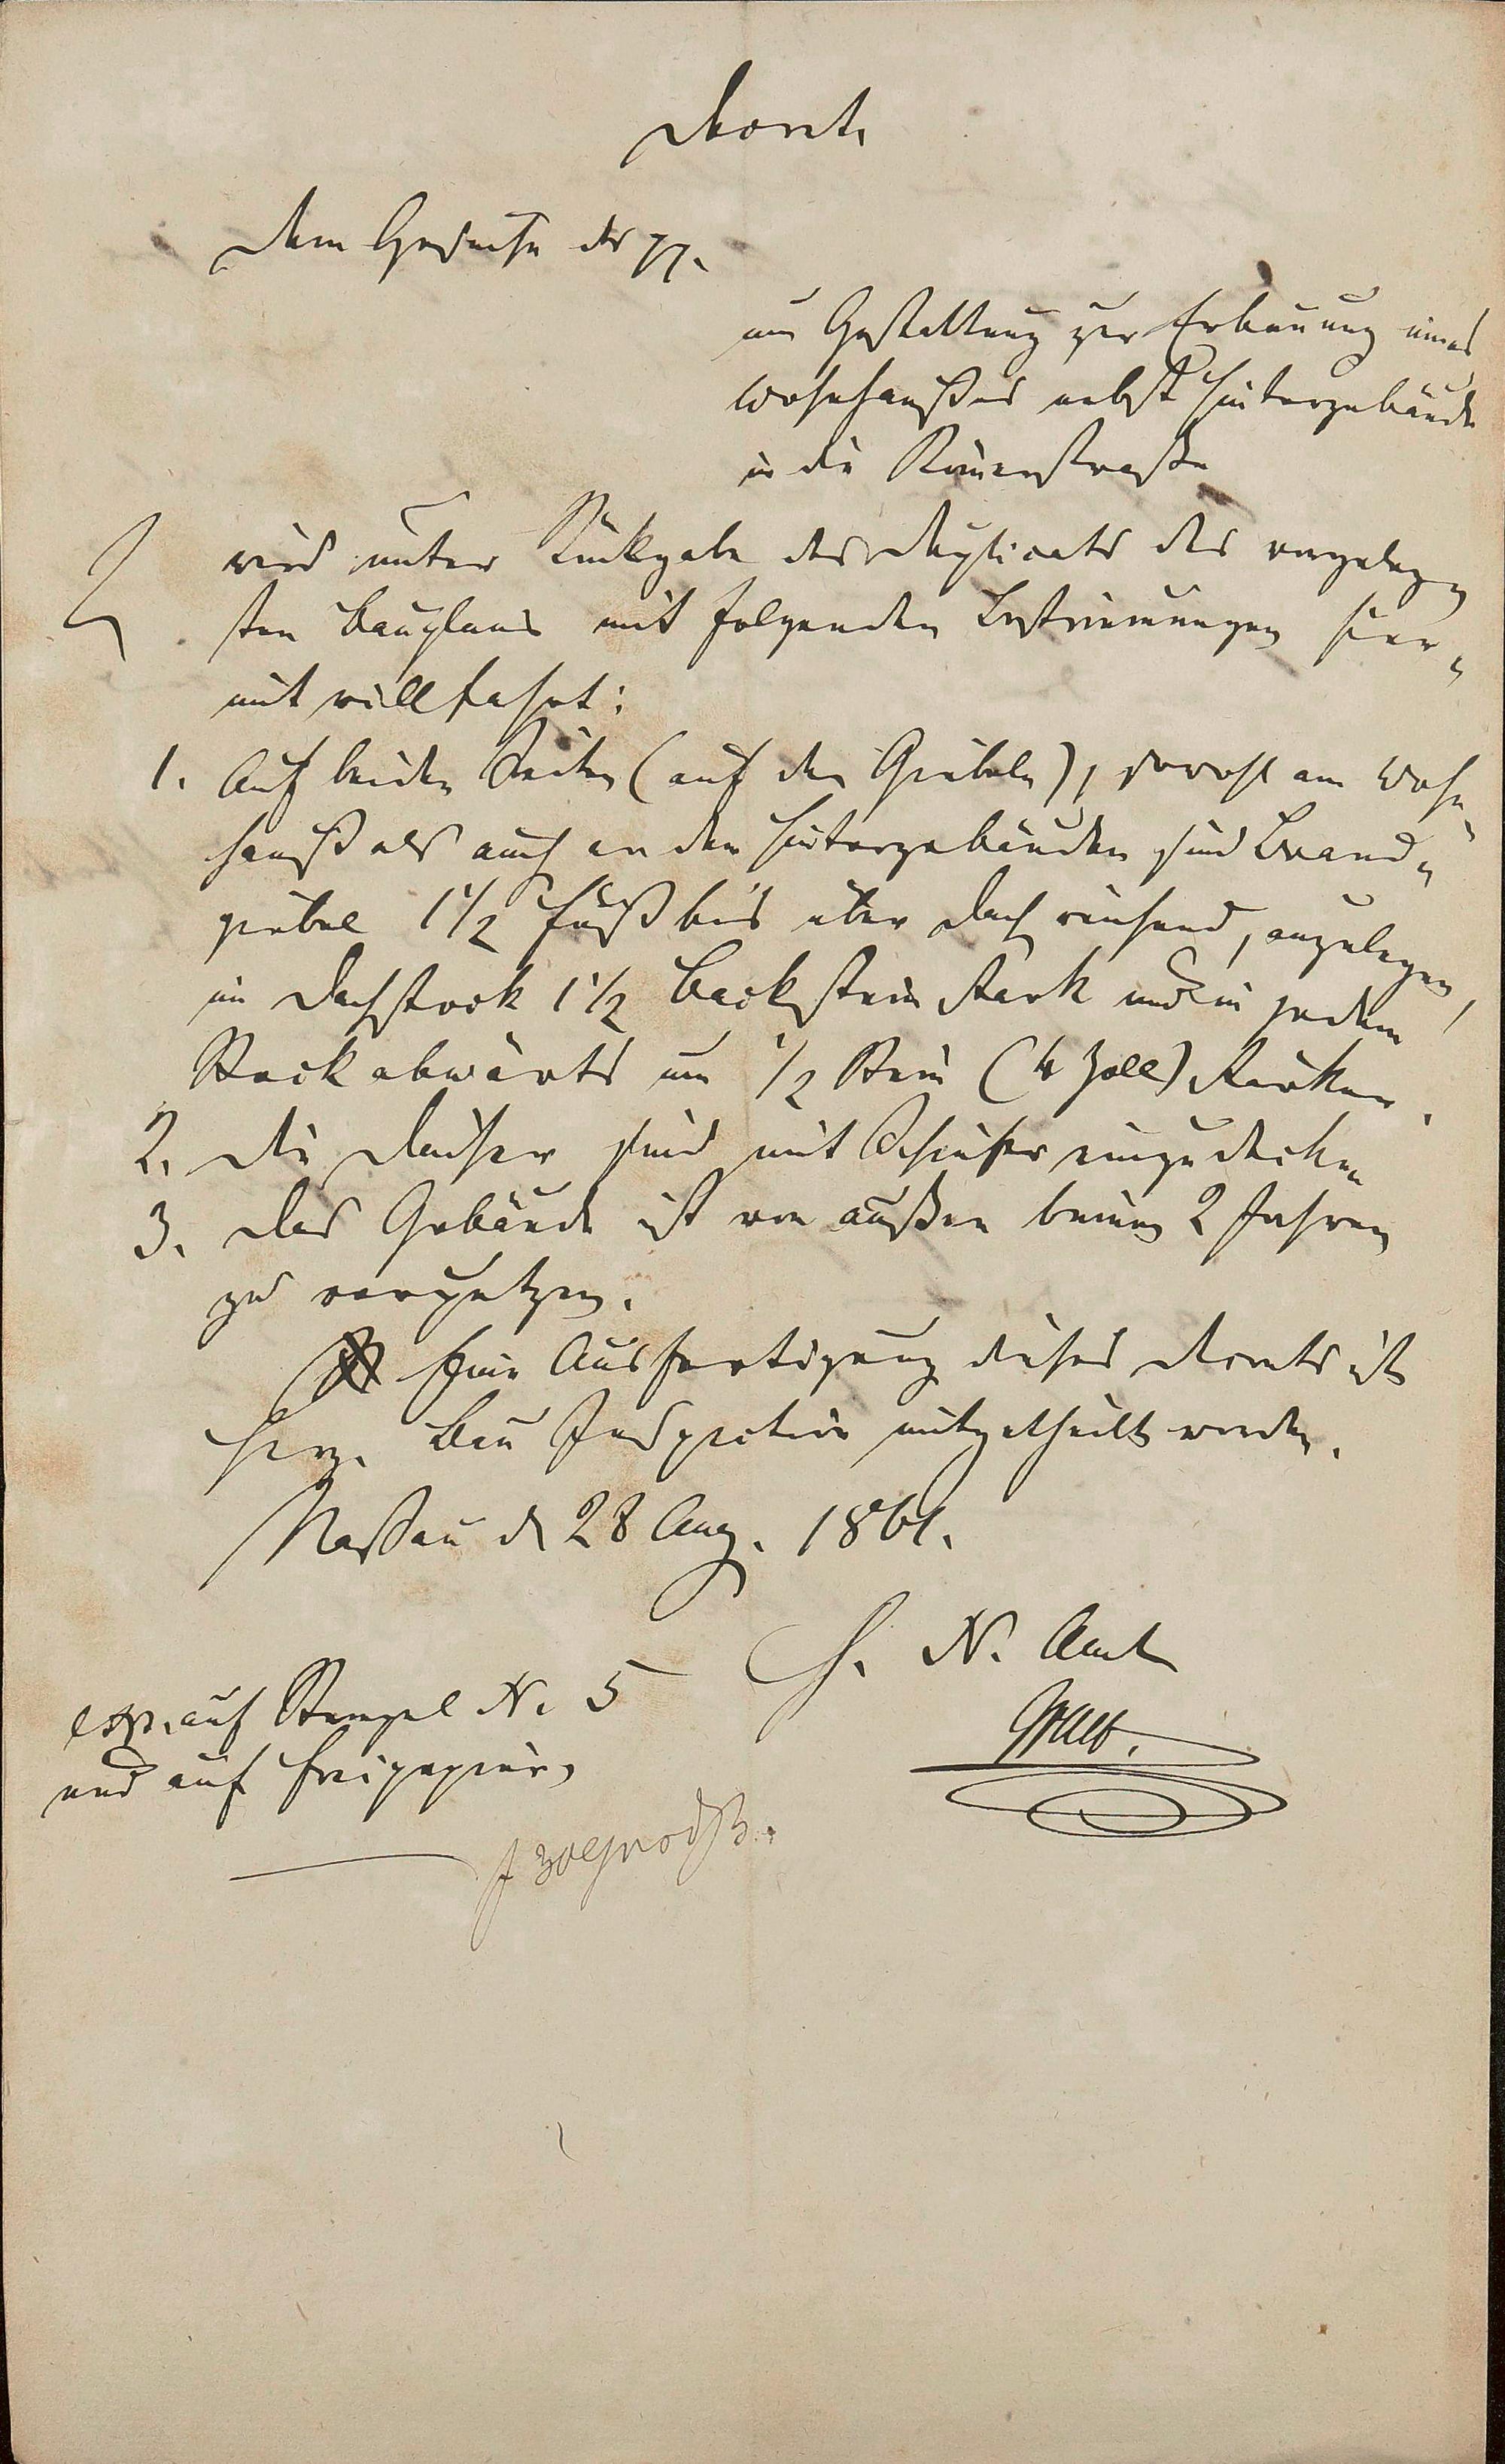 Decret.
Dem Gesuche des pp.
um Gestattung zur Erbauung eines
Wohnhaußes nebst Hintergebäude
in die Römerstraße
wird unter Rückgabe des Duplicats des vorgeleg-
ten Bauplans mit folgenden Bestimmungen hier-
mit willfahrt:
1. Auf beiden Seiten (auf den Giebeln), sowohl am Wohn-
hauß als auch an den Hintergebäuden sind Brand-
giebel 1 1/2 Fuß bis über Dach reichend, anzulegen,
im Dachstock 1 1/2 Backstein stark und in jedem
Stock abwärts um 1/2 Stein (4 Zoll) stärker.
2. Die Dächer sind mit Schiefer einzudecken
3. Das Gebäude ist von außen binnen 2 Jahren
zu verputzen.
Eine Ausfertigung dieses Decrets ist
Herz. Bau Inspection mitgetheilt worden.
Nassau d 28 Aug. 1861.
H. N. Amt
exp. auf Stempel N. 5
und auf Freipapier